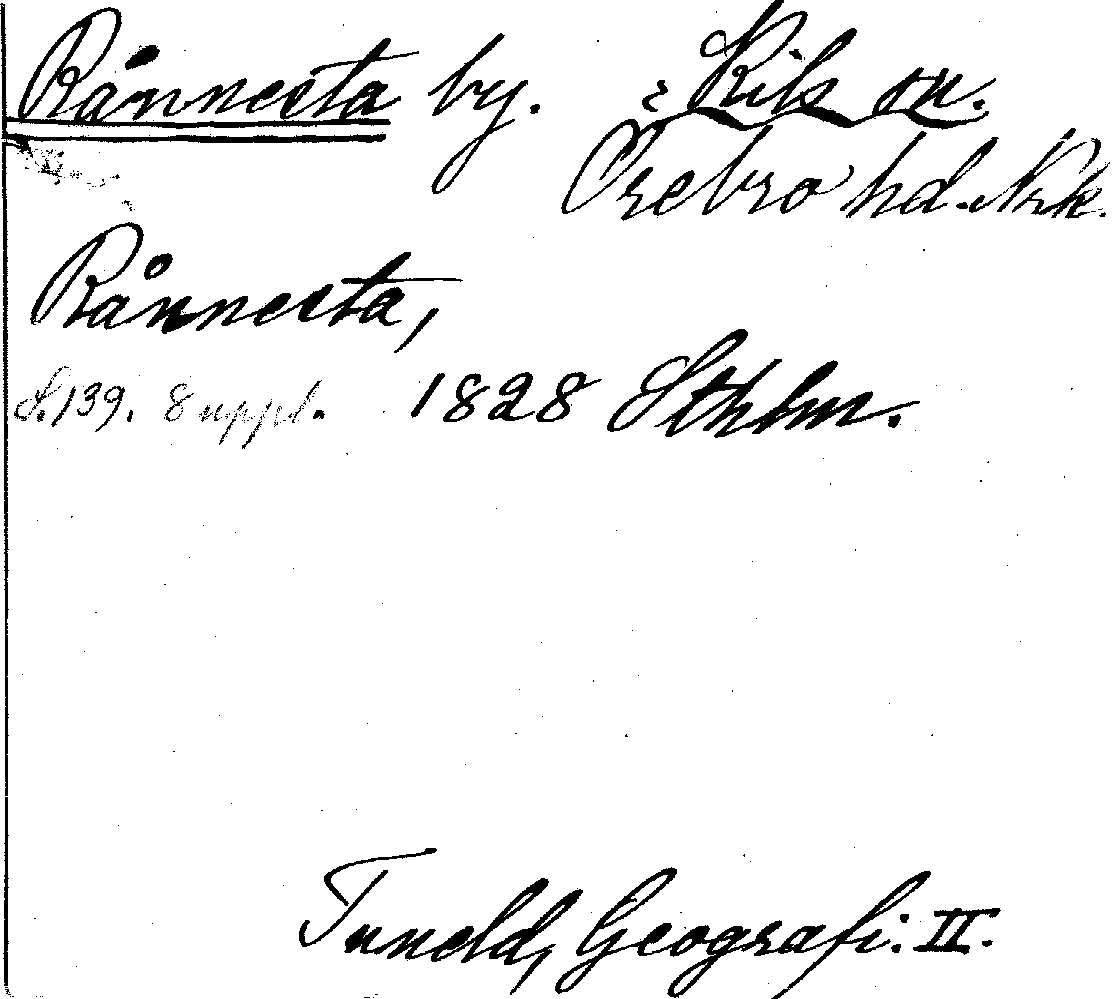 Rånnesta by. Kils sn.
Örebro hd. Nrk.
Rånnesta,
S. 139. 8 uppl. 1828 Sthlm.
Tuneld, Geografi. II.